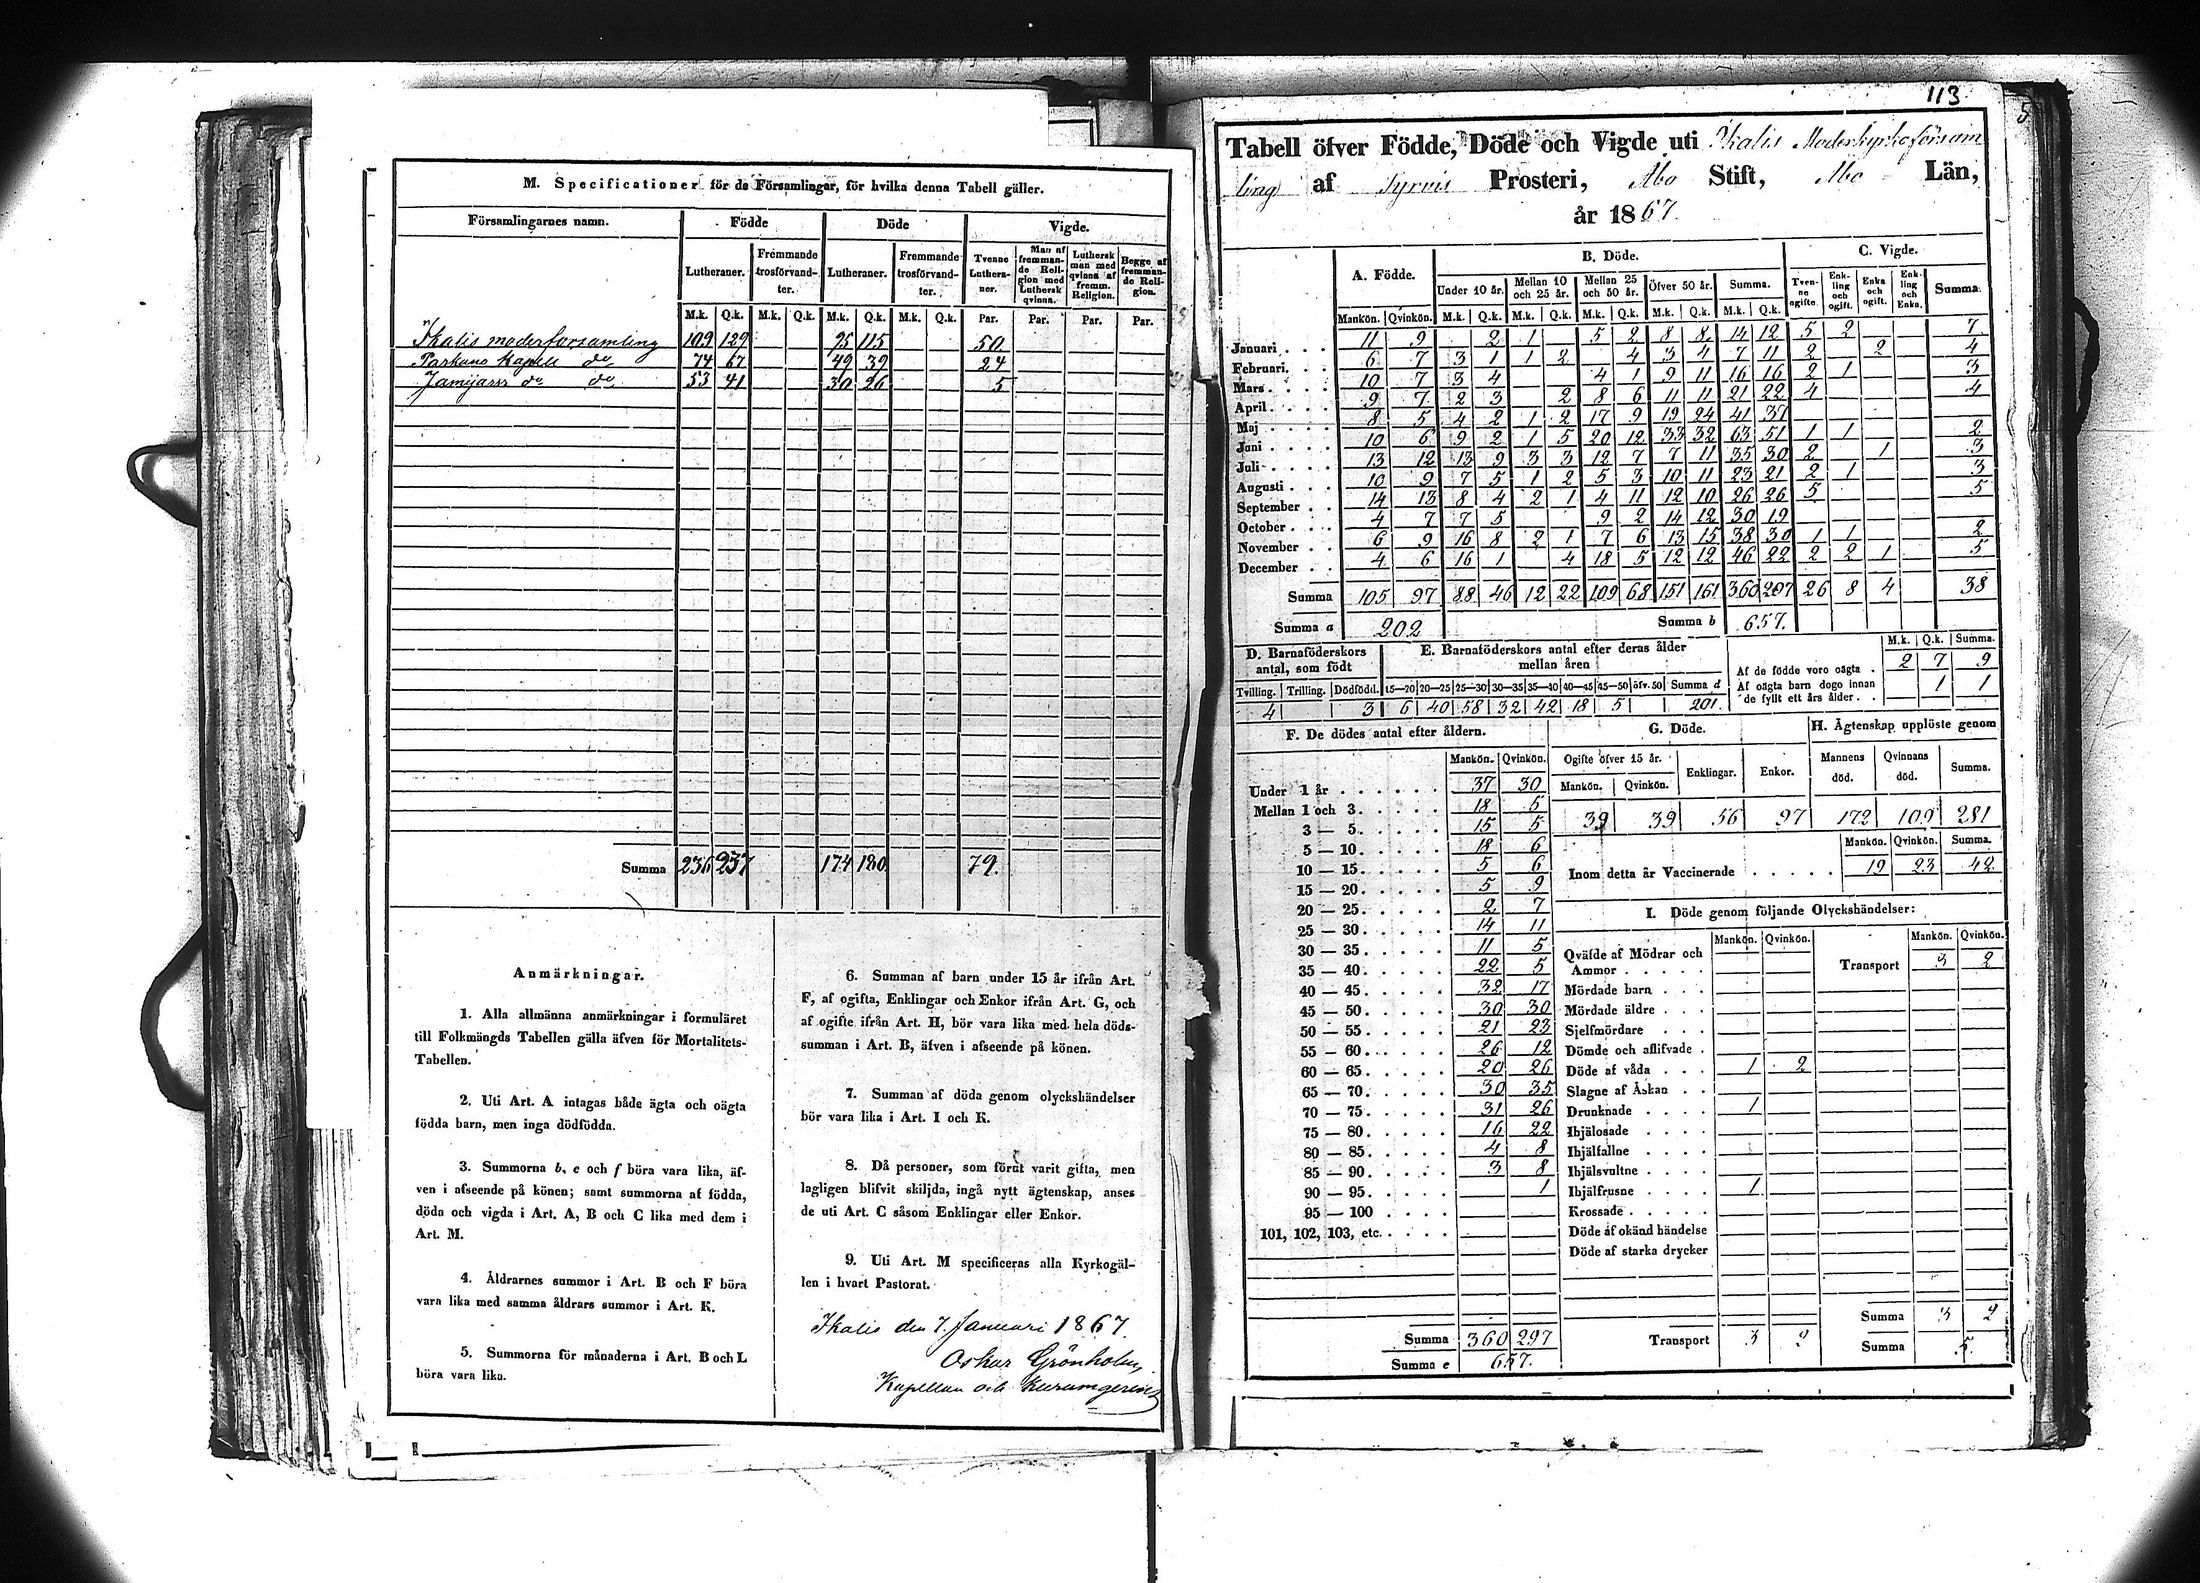 M. Specificationer för de Församlingar, för hvilka denna Tabell gäller.
Församlingarnes namn. Födde Döde Vigde.
Lutheraner. Fremmande trosförvandter. Lutheraner. Fremmande trosförvandter. Tvenne Lutheraner. Man af fremmande Religion med Luthersk qvinna. Luthersk man med qvinna af fremm. Religion. Begge af fremmande Religion.
M.k. Q.k. M.k. Q.k. M.k. Q.k. M.k. Q.k. Par. Par. Par. Par.
Ikalis moderforsamling 109 129 95 115 50
Parkano Kapell do 74 67 49 39 24
Jämijärvi do do 53 41 30 26 5
Summa 236 237 174 180 79.
Anmärkningar.
1. Alla allmänna anmärkningar i formuläret
till Folkmängds Tabellen gälla äfven för Mortalitets-
Tabellen.
2. Uti Art. A intagas både ägta och oägta
födda barn, men inga dödfödda.
3. Summorna b, e och f böra vara lika, äf-
ven i afseende på könen; samt summorna af födda,
döda och vigda i Art. A, B och C lika med dem i
Art. M.
4. Åldrarnes summor i Art. B och F böra
vara lika med samma åldrars summor i Art. K.
5. Summorna för månaderna i Art. B och L
böra vara lika.
6. Summan af barn under 15 år ifrån Art.
F, af ogifta, Enklingar och Enkor ifrån Art. G, och
af ogifte ifrån Art. H, bör vara lika med hela döds-
summan i Art. B, äfven i afseende på könen.
7. Summan af döda genom olyckshändelser
bör vara lika i Art. I och K.
8. Då personer, som förut varit gifta, men
lagligen blifvit skiljda, ingå nytt ägtenskap, anses
de uti Art. C såsom Enklingar eller Enkor.
9. Uti Art. M specificeras alla Kyrkogäl-
len i hvart Pastorat.
Ikalis den 7. Januari 1867.
Oskar Grönholm,
Kapellan och
113
Tabell öfver Födde, Döde och Vigde uti Ikalis Moderkyrkoförsam
ling af Tyrvis Prosteri, Åbo Stift, Åbo Län,
år 1867.
A. Födde. B. Döde. C. Vigde.
Under 10 år. Mellan 10 och 25 år. Mellan 25 och 50 år. Öfver 50 år. Summa. Tvenne ogifte. Enkling och ogift. Enka och ogift. Enkling och Enka. Summa.
Mankön. Qvinkön. M.k. Q.k. M.k. Q.k. M.k. Q.k. M.k. Q.k. M.k. Q.k.
Januari 11 9 2 1 5 2 8 8 14 12 5 2 7
Februari 6 7 3 1 1 2 4 3 4 7 11 2 2 4
Mars 10 7 3 4 4 1 9 11 16 16 2 1 3
April 9 7 2 3 2 8 6 11 11 21 22 4 4
Maj 8 5 4 2 1 2 17 9 19 24 41 37
Juni 10 6 9 2 1 5 20 12 33 32 63 51 1 1 2
Juli 13 12 13 9 3 3 12 7 7 11 35 30 2 1 3
Augusti 10 9 7 5 1 2 5 3 10 11 23 21 2 1 3
September 14 13 8 4 2 1 4 11 12 10 26 26 5 5
October 4 7 7 5 9 2 14 12 30 19
November 6 9 16 8 2 1 7 6 13 15 38 30 1 1 2
December 4 6 16 1 4 18 5 12 12 46 22 2 2 1 5
Summa 105 97 88 46 12 22 109 68 151 161 360 297 26 8 4 38
Summa a 202 Summa b 657.
D. Barnaföderskors antal, som födt
Tvilling. Trilling. Dödfödd.
4 3
E. Barnaföderskors antal efter deras ålder mellan åren
15—20 20—25 25—30 30—35 35—40 40—45 45—50 öfv. 50 Summa d
6 40 58 32 42 18 5 201.
M.k. Q.k. Summa.
Af de födde voro oägta 2 7 9
Af oägta barn dogo innan de fyllt ett års ålder 1 1
F. De dödes antal efter åldern.
Mankön. Qvinkön.
Under 1 år 37 30
Mellan 1 och 3 18 5
3 — 5 15 5
5 — 10 18 6
10 — 15 5 6
15 — 20 5 9
20 — 25 2 7
25 — 30 14 11
30 — 35 11 5
35 — 40 22 5
40 — 45 32 17
45 — 50 30 30
50 — 55 21 23
55 — 60 26 12
60 — 65 20 26
65 — 70 30 35
70 — 75 31 26
75 — 80 16 22
80 — 85 4 8
85 — 90 3 8
90 — 95 1
95 — 100
101, 102, 103, etc.
Summa 360 297
Summa e 657.
G. Döde.
Ogifte öfver 15 år. Enklingar. Enkor.
Mankön. Qvinkön.
39 39 56 97
H. Ägtenskap upplöste genom
Mannens död. Qvinnans död. Summa.
172 109 281
Mankön. Qvinkön. Summa.
Inom detta år Vaccinerade 19 23 42
I. Döde genom följande Olyckshändelser:
Mankön. Qvinkön. Mankön. Qvinkön.
Qväfde af Mödrar och Ammor
Transport 3 2
Mördade barn
Mördade äldre
Sjelfmördare
Dömde och aflifvade
Döde af våda 1 2
Slagne af Åskan
Drunknade 1
Ihjälosade
Ihjälfallne
Ihjälsvultne
Ihjälfrusne 1
Krossade
Döde af okänd händelse
Döde af starka drycker
Summa 3 2
Transport 3 2 Summa 5.